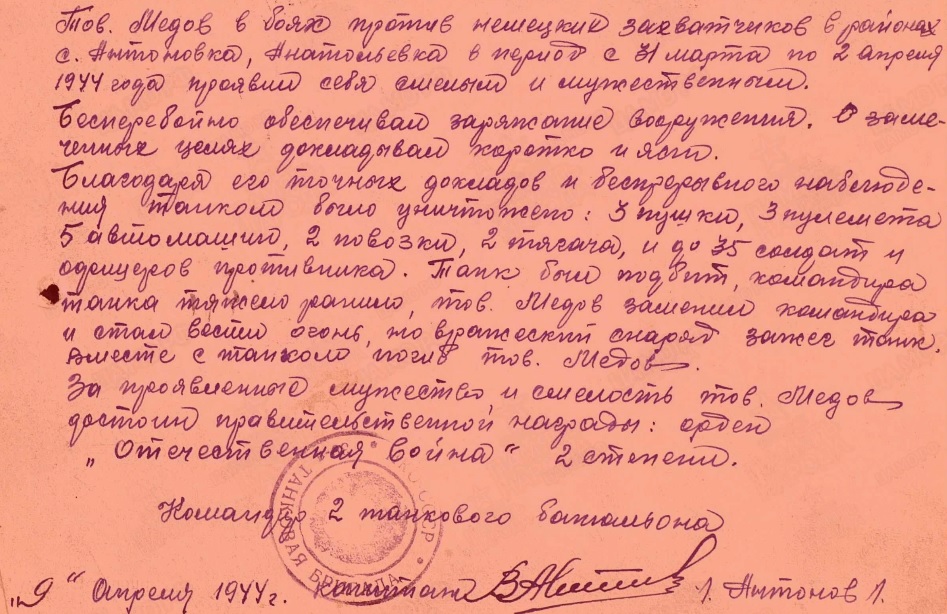 Тов. Медов в боях против немецких захватчиков в районах
с. Антоновка, Анатольевка в период с 31 марта по 2 апреля
1944 года проявил себя смелым и мужественным.
Бесперебойно обеспечивал заряжание вооружения. О заме-
ченных целях докладывал коротко и ясно.
Благодаря его точных докладов и беспрерывного наблюде-
ния танком было уничтожено: 3 пушки, 3 пулемета
5 автомашин, 2 повозки, 2 тягача, и до 35 солдат и
офицеров противника. Танк был подбит, командира
танка тяжело ранило, тов. Медов заменил командира
и стал вести огонь, но вражеский снаряд зажег танк.
Вместе с танком погиб тов. Медов.
За проявленные мужество и смелость тов. Медов
достоин правительственной награды: орден
„Отечественная война" 2 степени.
Командир 2 танкового батальона
ТАНКОВАЯ БРИГАДА
„9" Апреля 1944 г. капитан / Антонов /.